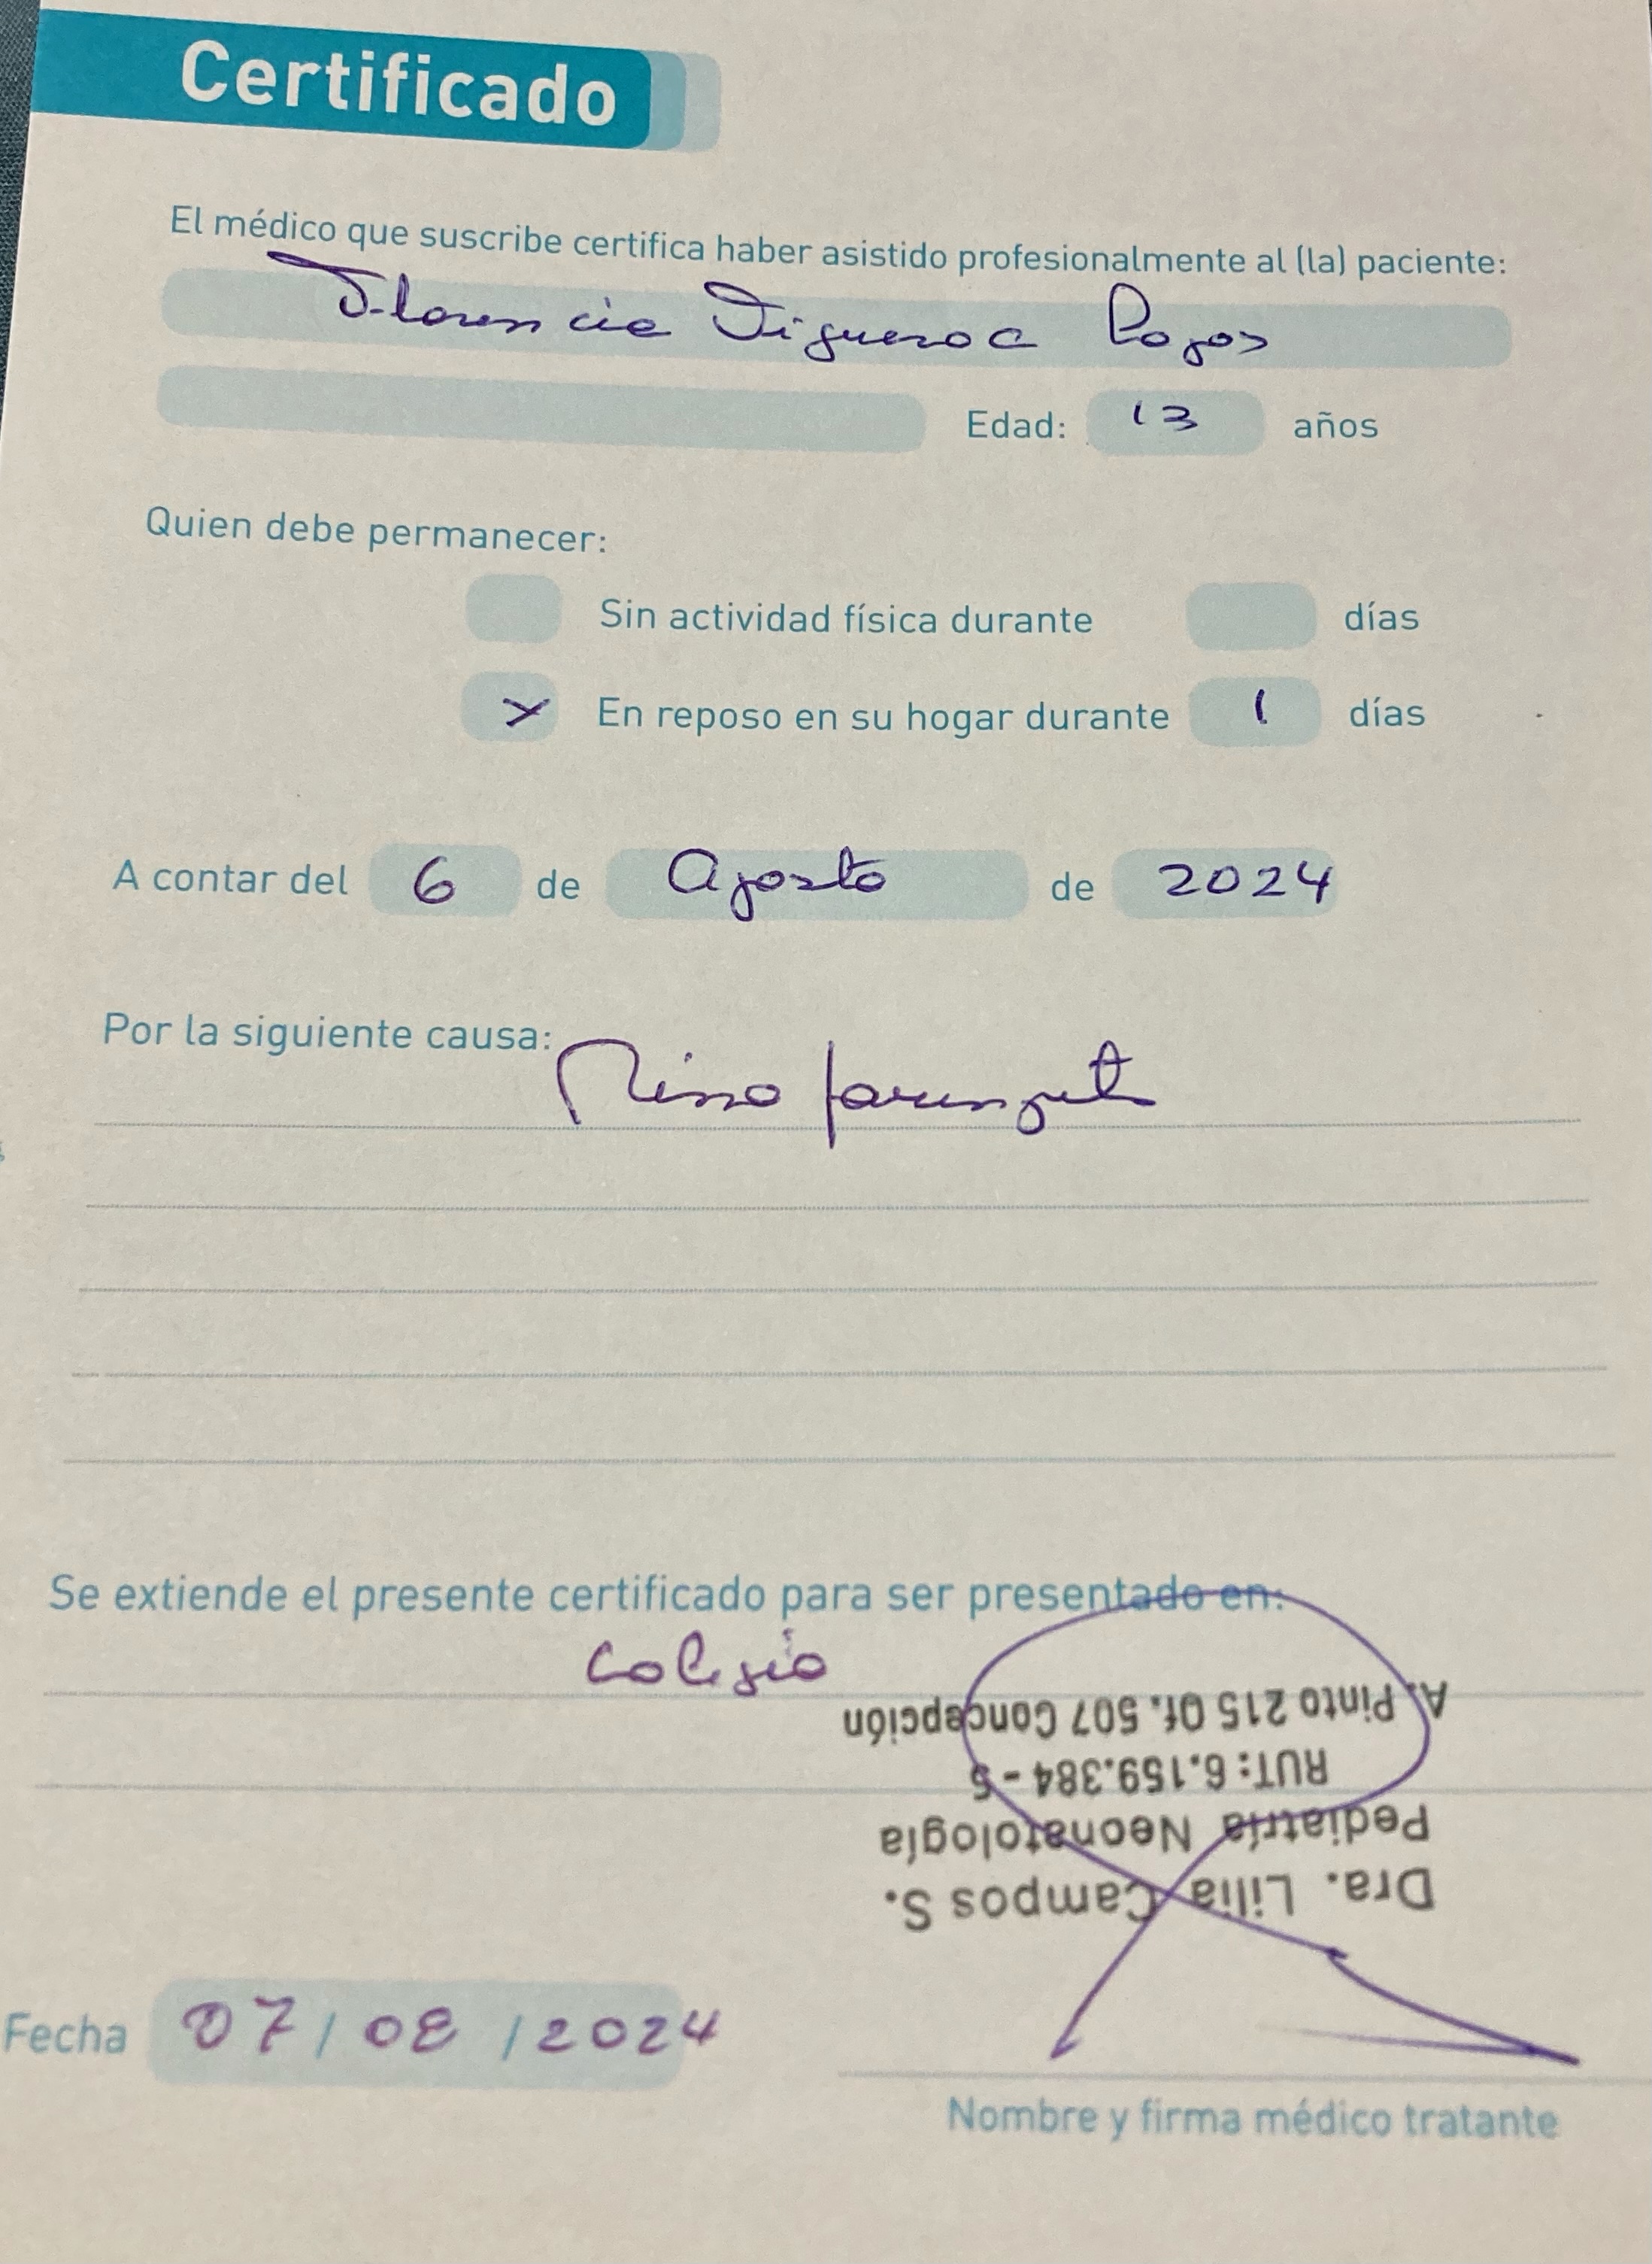 Certificado
El médico que suscribe certifica haber asistido profesionalmente al (la) paciente:
Florencia Figueroa
Edad: 13 años
Quien debe permanecer:
Sin actividad física durante días
x En reposo en su hogar durante 1 días
A contar del 6 de Agosto de 2024
Por la siguiente causa:
Rino
Se extiende el presente certificado para ser presentado en:
Colegio
Dra. Lilia Campos S.
Pediatría Neonatología
RUT: 6.159.384 - 5
A. Pinto 215 Of. 507 Concepción
Fecha 07/08/2024
Nombre y firma médico tratante